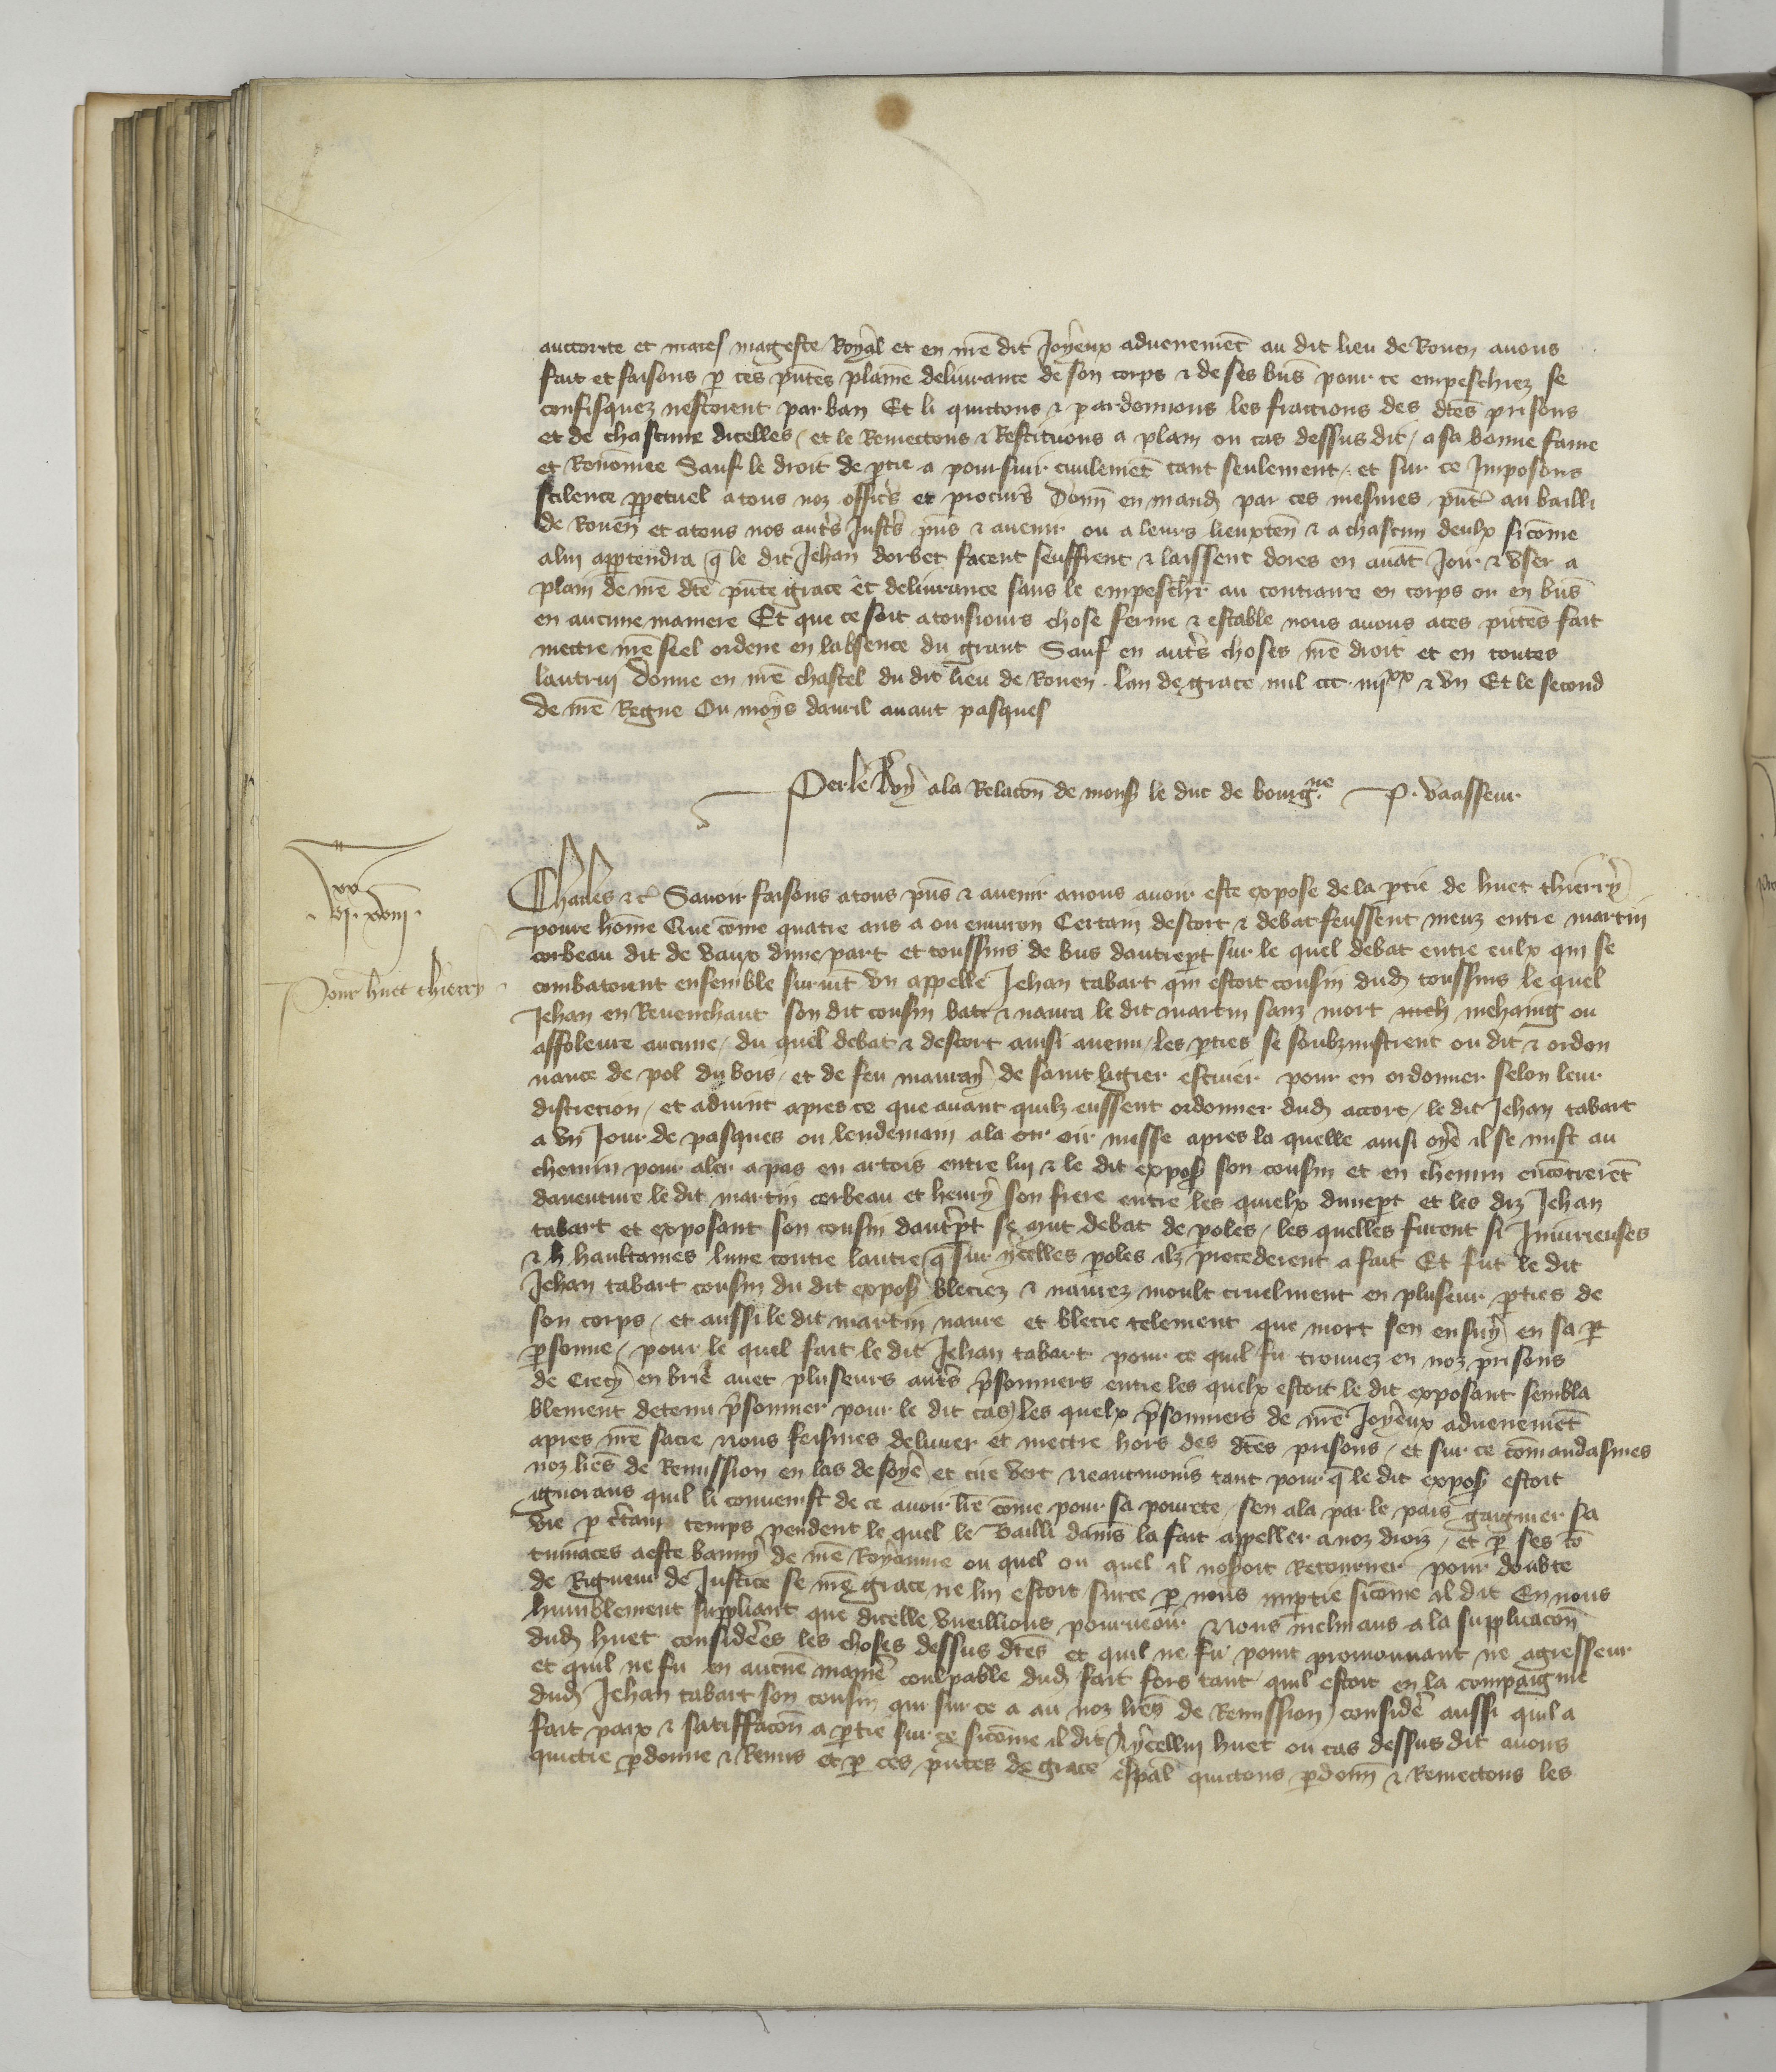 auctorite et mates mageste Royal et en nre dit Joyeux advenement au dit lieu de Rouen avons
fait et faisons p ces pntes plaine delivrance de son corps & de ses bns pour ce empeschiez se
confisquez nestoient par ban Et li quictons & pardonnons les fractions des dtes prisons
et de chascune dicelles / et le Remectons & Restituons a plain ou cas dessus dit / a sa bonne fame
et Renomee Sauf le droit de ptie a poursuir civilement tant seulement / et sur ce Imposons
scilence ppetuel a tous noz offics et procurs Donn en mand par ces mesmes pnt au bailli
de Rouen et a tous nos auts Justs pns & avenir ou a leurs lieuxten & a chascun deulx sicome
a lui apptendra q le dit Jehan dorbet facent seuffrent & laissent dores en avat Joir & user a
plain de nre dte pnte grace et delivrance sans le empeschr au contraire en corps ou en bns
en aucune maniere Et que ce soit a tousiours chose ferme & estable nous avons a ces pntes fait
mectre nre seel ordene en labsence du grant Sauf en auts choses nre droit et en toutes
lautrui Donne en nre chastel du dit lieu de Rouen . lan de grace mil ccc iiijxx & un Et le second
de nre Regne Ou moys davril avant pasques
Per le Roy a la Relacon de mons le duc de bourgne P. Vaasseur
vixx xviii
Pour huet thierry
Charles &c Savoir faisons a tous pns & avenir a nous avoir este expose de la ptie de huet thierry
povre home Que come quatre ans a ou environ Certain descort & debat feussent meuz entre martin
corbeau dit de vaux dune part et toussins de bus dautrept sur le quel debat entre eulx qui se
combatoient ensemble survit un appelle Jehan tabart qui estoit cousin dud toussins le quel
Jehan en Revenchant son dit cousin bati & navra le dit martin sanz mort meh mehaing ou
affoleure aucune / du quel debat & descort ainsi avenu / les pties se soubzmistrent ou dit & ordon
nance de pol du bois / et de feu mauray de saint ligier escuier pour en ordonner selon leur
discrecion / et advint apres ce que avant quilz eussent ordonner dud accort / le dit Jehan tabart
a un Jour de pasques ou lendemain ala oir oir messe apres la quelle ainsi oye il se mist au
chemin pour aler a pas en artois entre lui & le dit expos son cousin et en chemin encotreret
daventure le dit martin corbeau et henry son frere entre les quelx dunept et les diz Jehan
tabart et exposant son cousin dautpt se mut debat de poles / les quelles furent si Iniurieuses
& h haultaines lune contre lautre q sur ycelles poles ilz procederent a fait Et fut le dit
Jehan tabart cousin du dit expos bleciez & navrez moult cruelment en pluseur pties de
son corps / et aussi le dit martin navre et blecie telement que mort sen ensuy en sa p
psonne / pour le quel fait le dit Jehan tabart pour ce quil fu trouvez en noz prisons
de Crecy en brie avec pluseurs auts psonniers entre les quelx estoit le dit exposant sembla
blement detenu psonnier pour le dit cas) les quelx psonniers de nre Joyeux advenement
apres nre sacre Nous feismes delivrer et mectre hors des dtes prisons / et sur ce comandasmes
noz lres de Remission en las de soye et cire vert neantmoins tant pour q le dit expos estoit
ignorans quil li convenist de ce avoir lre come pour sa povrete / sen ala par le pais gaigner sa
vie p ctain temps pendent le quel le Bailli damis la fait appeller a noz droiz / et p ses co
tumaces a este banny de nre Royaume ou quel ou quel il nosoit Retourner pour doubte
de Rigueur de Justice se nre grace ne lui estoit sur ce p nous imptie sicome il dit En nous
humblement suppliant que dicelle vueillions pourveoir Nous inclinans a la supplicacon
dud huet consideres les choses dessus dtes et quil ne fu point promouvant ne agresseur
et quil ne fu en aucune maniere coulpable dud fait fors tant quil estoit en la compaignie
dud Jehan tabart son cousin qui sur ce a au noz lres de Remission) conside aussi quil a
fait paix & satiffacon a ptie sur ce sicome il dit A ycellui huet ou cas dessus dit avons
quictie pdonne & Remis et p ces pntes de grace espal quictons pdonn & Remectons les